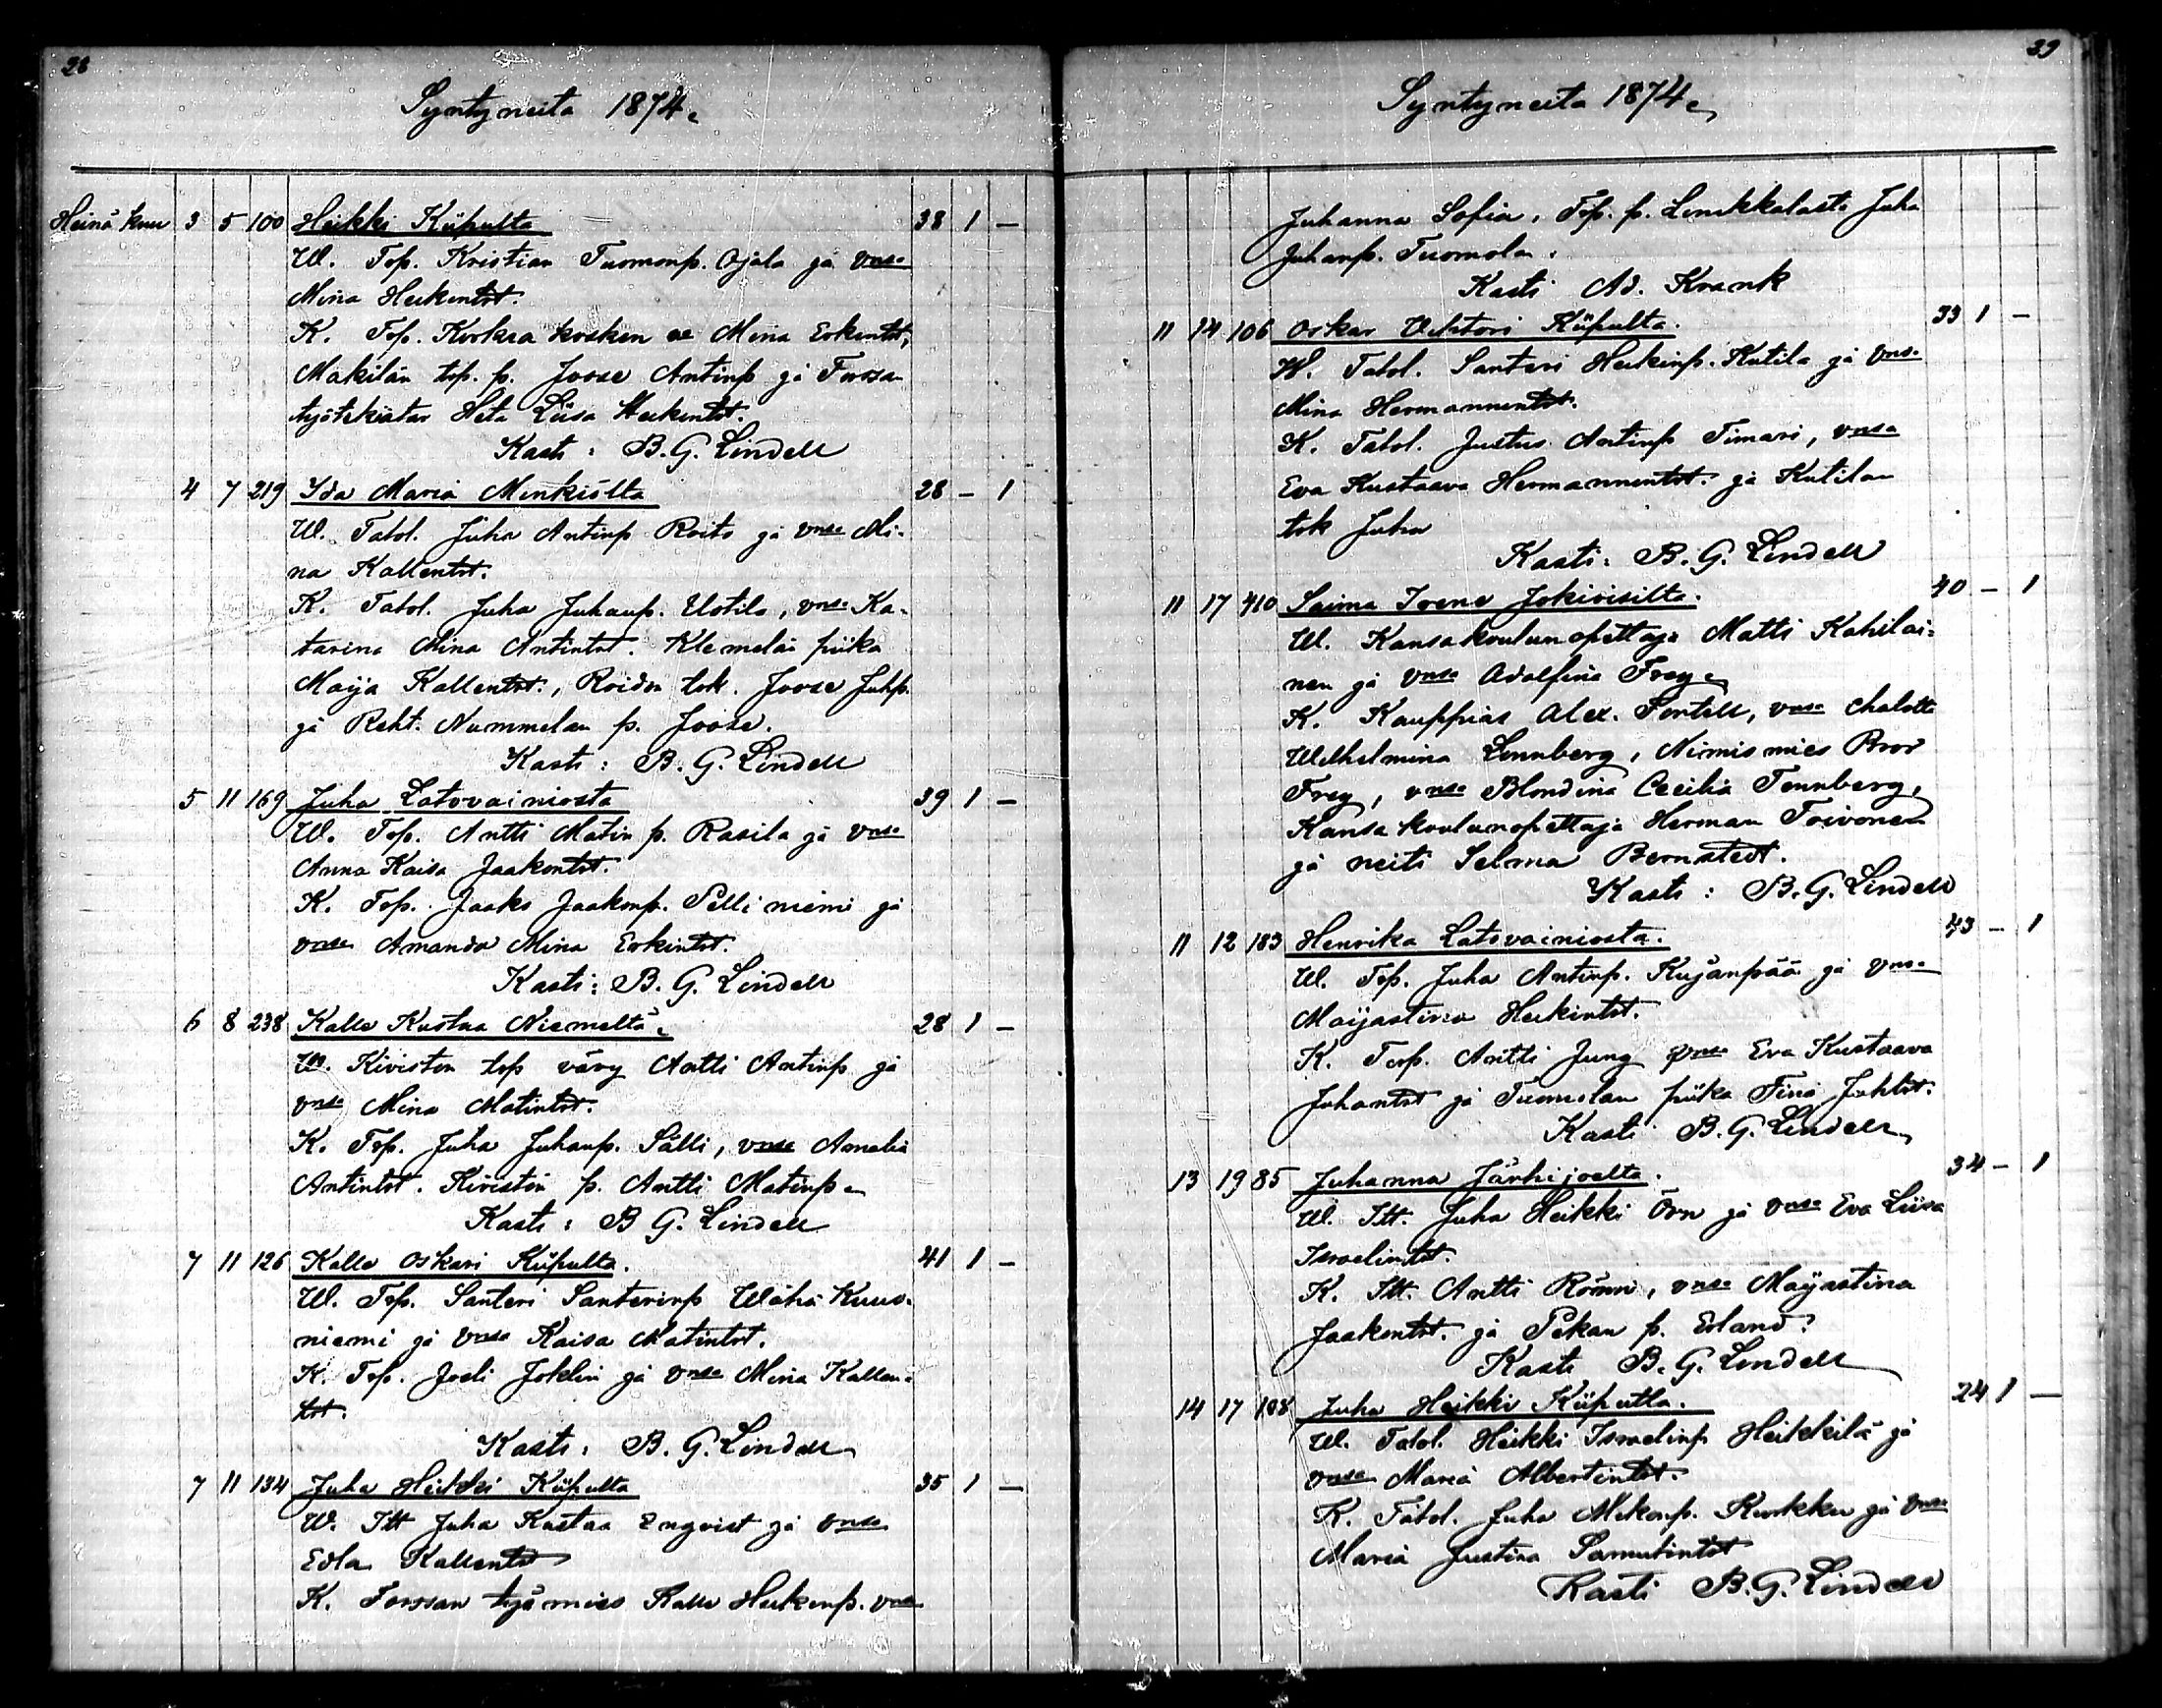 28
Syntyneitä 1874.
Heinä kuu 3 5 100 Heikki Kiipulta 38 1 –
W. Top. Kristian Tuomonp. Ojala ja vmsa
Mina Heikintrt.
K. Top. Korkea kosken Mina Erkintrt,
Mäkilän top. p. Joose Antinp ja Forssa
Heta Liisa Heikintrt
Kasti: B. G. Lindell
4 7 219 Ida Maria Minkiöltä 28 – 1
W. Talol. Juha Antinp Roito ja vmsa Mi-
na Kallentrt.
K. Talol. Juha Juhanp. Uotila, vmsa Ka-
tarina Mina Antintrt. Klemelän piika
Maija Kallentrt., Roidon lok. Joose Juhp.
ja Reht. Nummelan p. Joose.
Kasti: B. G. Lindell
5 11 169 Juha Latovainiosta 39 1 –
W. Top. Antti Matin p. Rasila ja vmsa
Anna Kaisa Jaakontrt.
K. Top. Jaako Jaakonp. Pelliniemi ja
vmsa Amanda Mina Erkintrt.
Kasti: B. G. Lindell
6 8 238 Kalle Kustaa Niemeltä. 28 1 –
W. Kiviston top vävy Antti Antinp ja
vmsa Mina Matintrt.
K. Top. Juha Juhanp. Sälli, vmsa Amalia
Antintrt. Kivistön p. Antti Matinp.
Kasti: B G. Lindell
7 11 126 Kalle Oskari Kiipulta. 41 1 –
W. Top. Santeri Santerinp Wähä Kuus-
niemi ja vmsa Kaisa Matintrt.
K. Top. Joeli Joklin ja vmsa Mina Kallen-
trt.
Kasti: B. G. Lindell
7 11 134 Juha Heikki Kiipulta 35 1 –
W. Itt Juha Kustaa Enqvist ja vmsa
Edla Kallentrt
K. Forssan työmies Kalle Heikinp. vmsa
39
Syntyneitä 1874.
Juhanna Sofia, Top. p. Linikkalasta Juha
Juhanp. Tuomola.
Kasti Ad. Krank
11 14 106 Oskar Vihtori Kiipulta. 33 1 –
W. Talol. Santeri Heikinp. Kutila ja vmsa
Mina Hermannintrt.
K. Talol. Justus Antinp Timari, vmsa
Eva Kustaava Hermannintrt. ja Kutilan
Juha
Kasti: B. G. Lindell
11 17 410 Saima Irene Jokioisilta. 40 – 1
W. Kansakoulunopettaja Matti Kahilai-
nen ja vmsa Adolfina Frey.
K. Kauppias Alex. Fontell, vmsa Chalotta
Wilhelmina Lennberg, Nimismies Bror
Frey, vmsa Blondina Cecilia Tennberg,
Kansa koulunopettaja Herman Toivonen
ja neiti Selma Bernstedt.
Kasti: B. G. Lindell
11 12 183 Henrika Latovainiosta. 43 – 1
W. Top. Juha Antinp. Kujanpää ja vmsa
Maijastina Heikintrt.
K. Top. Antti Jung vmsa Eva Kustaava
Juhantrt ja Tuomolan piika Fina Juhtrt.
Kasti B. G. Lindell
13 19 85 Juhanna Jänhijoelta. 34 – 1
W. Itt. Juha Heikki Örn ja vmsa Eva Liisa
Israelintrt.
K. Itt. Antti Römni, vmsa Maijastina
Jaakontrt. ja Pekan p. Erland?
Kasti B. G. Lindell
14 17 108 Juha Heikki Kiipulta. 24 1 –
W. Talol. Heikki Israelinp Heikkilä ja
vmsa Maria Albertintrt.
K. Talol. Juha Mikonp. Kurkku ja vmsa
Maria Justina Samulintrt
Kasti B. G. Lindell